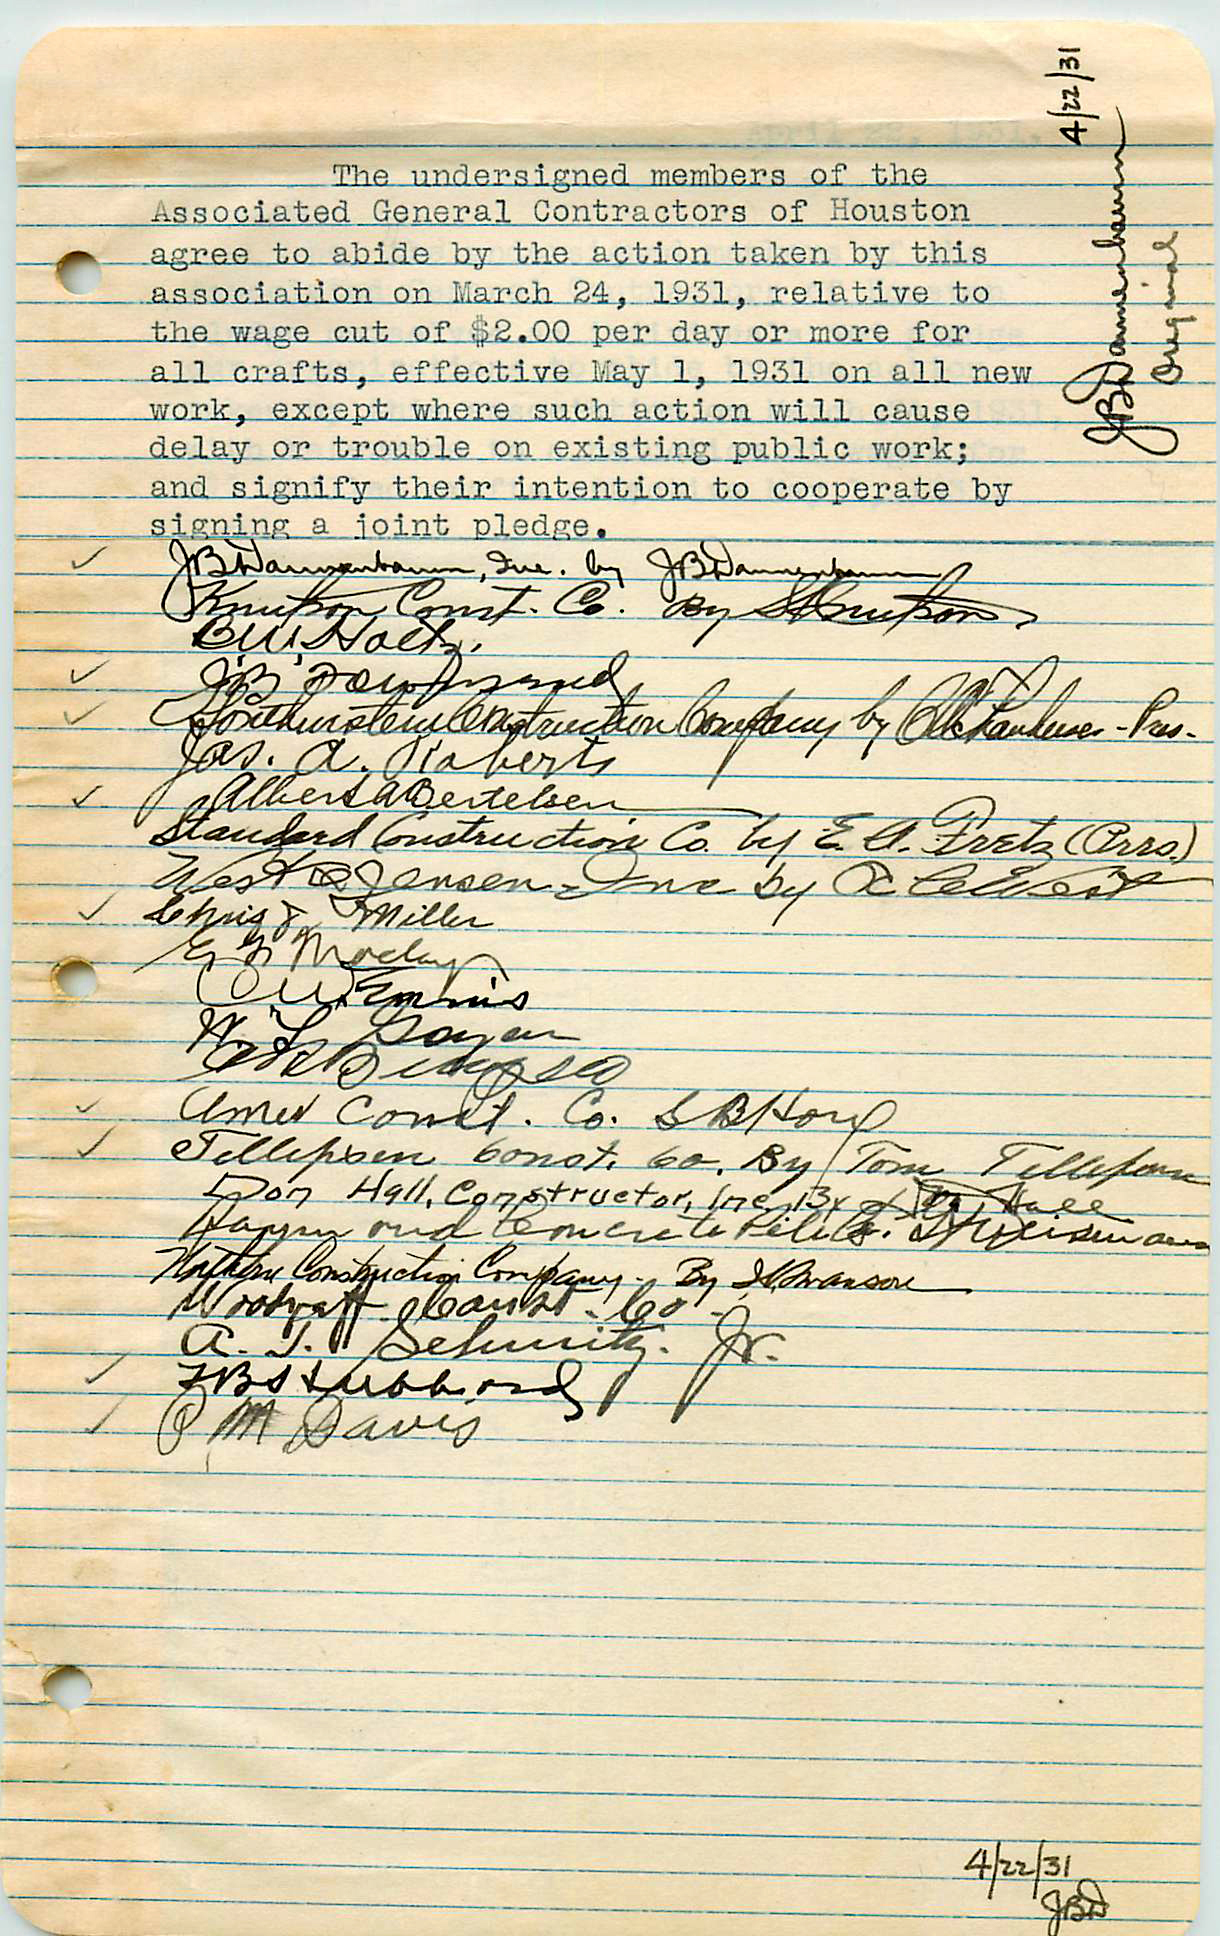 4/22/31
JBDannenbaum
Original
April 22, 1931.
The undersigned members of the
Associated General Contractors of Houston
agree to abide by the action taken by this
association on March 24, 1931, relative to
the wage cut of $2.00 per day or more for
all crafts, effective May 1, 1931 on all new
work, except where such action will cause
delay or trouble on existing public work;
and signify their intention to cooperate by
signing a joint pledge.
✓ JBDannenbaum, Inc. by JBDannenbaum
Knutson Const. Co. By Knutson
✓ J.B. Townsend
✓ Construction Company by - Pres.-
Jas. A. Roberts
✓ Albert A Bertelsen
Standard Construction Co. by E. A. Fretz (Pres.)
West & Jensen - Inc by West
✓ Chris J Miller
C W Ennis
W. L. Goyen
✓ Amer Const. Co. S B Hord
✓ Tellepsen Const. Co. By Tom Tellepsen
Don Hall, Constructor, Inc. By Don Hall
Raymond Concrete Pile Co.
Northern Construction Company - By Swanson
Const. Co.
A. T. Jr.
✓ Hubbard
✓ P M Davis
4/22/31
JBD